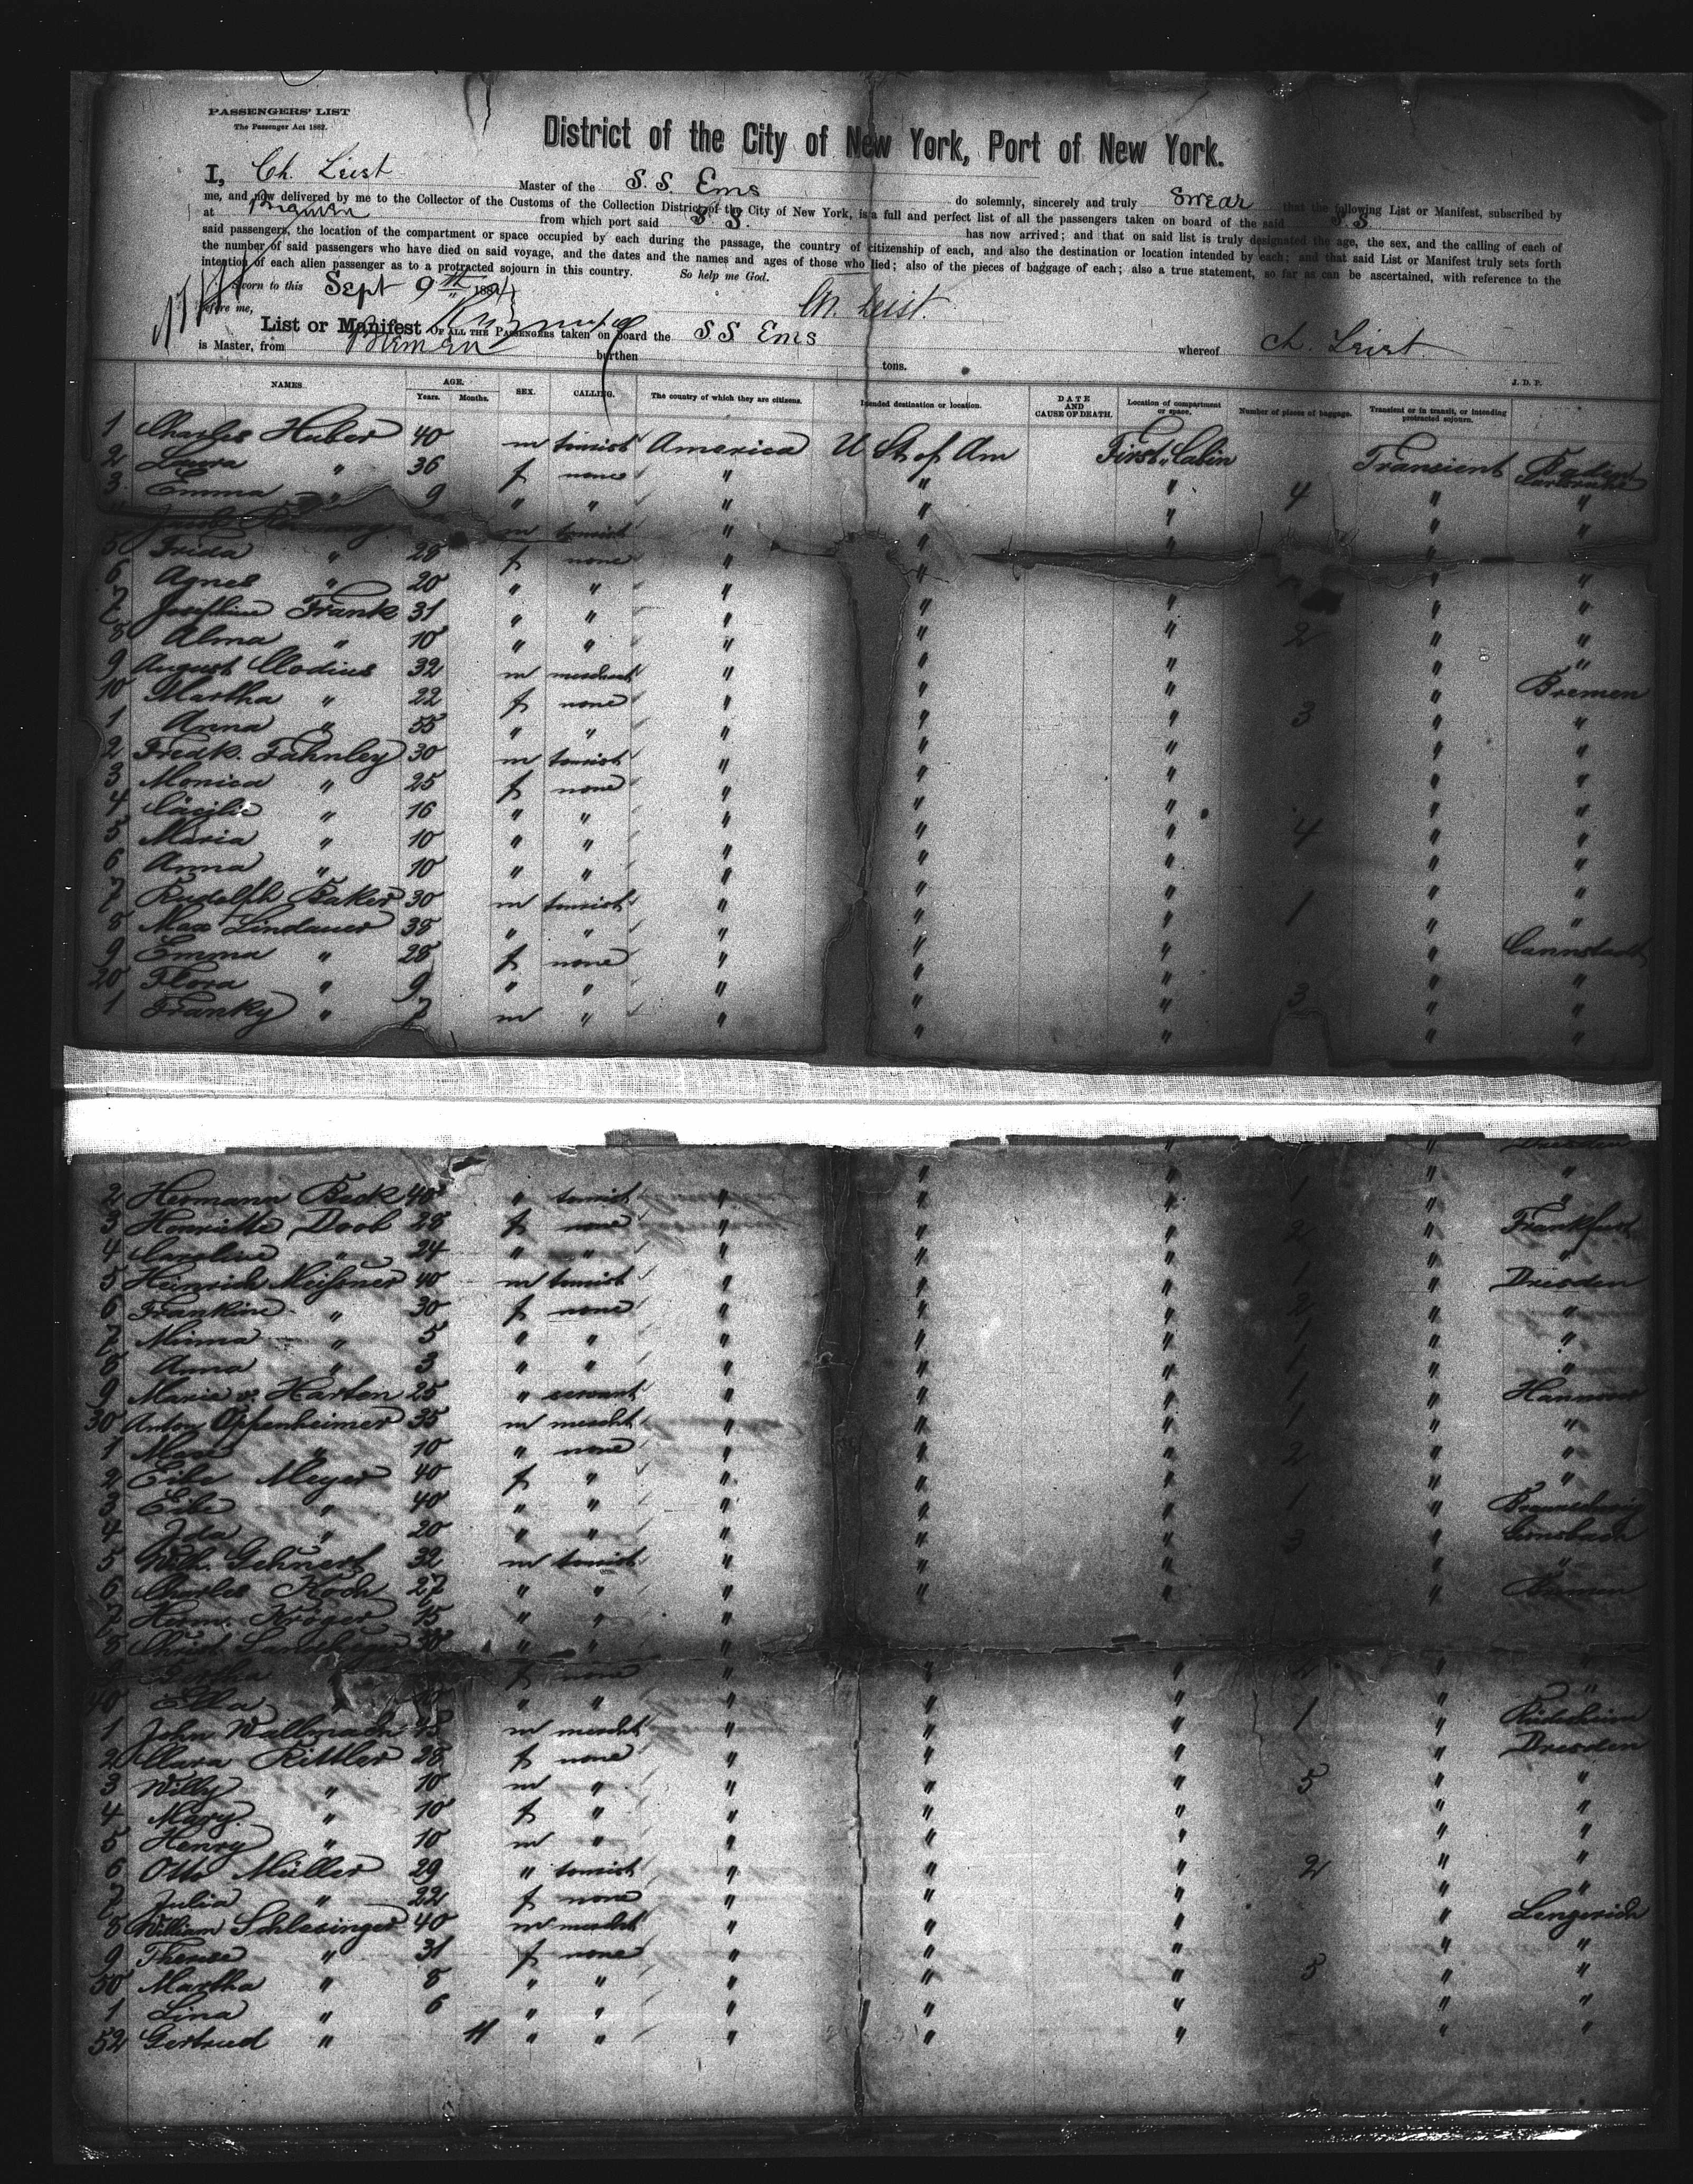 PASSENGERS' LIST
The Passenger Act 1882.
District of the City of New York, Port of New York.
I, Ch. Leist Master of the S. S. Ems do solemnly, sincerely and truly swear that the following List or Manifest, subscribed by
me, and now delivered by me to the Collector of the Customs of the Collection District of the City of New York, is a full and perfect list of all the passengers taken on board of the said S. S.
at Bremen from which port said S S. has now arrived; and that on said list is truly designated the age, the sex, and the calling of each of
said passengers, the location of the compartment or space occupied by each during the passage, the country of citizenship of each, and also the destination or location intended by each; and that said List or Manifest truly sets forth
the number of said passengers who have died on said voyage, and the dates and the names and ages of those who died; also of the pieces of baggage of each; also a true statement, so far as can be ascertained, with reference to the
intention of each alien passenger as to a protracted sojourn in this country. So help me God.
Sworn to this Sept 9th 188
before me, Ch. Leist.
List or Manifest OF ALL THE PASSENGERS taken on board the S S Ems whereof Ch. Leist
is Master, from Bremen burthen tons.
J. D. P.
NAMES. AGE. Years. Months. SEX. CALLING. The country of which they are citizens. Intended destination or location. DATE AND CAUSE OF DEATH. Location of compartment or space. Number of pieces of baggage. Transient or in transit, or intending protracted sojourn.
1 Charles Huber 40 m tourist America U St of Am First Cabin Transient Baden
2 Laura " 36 f none " " " 4 " "
3 Emma " 9 " " " " " " "
Jacob m tourist " " " "
5 Frida " 28 f none " " " " "
6 Agnes " 20 " " " " " " "
7 Josephine Frank 31 " " " " " " "
8 Alma " 10 " " " " " 2 " "
9 August Clodius 32 m merchant " " " " Bremen
10 Martha " 22 f none " " " " "
1 Anna " 55 " " " " " 3 " "
2 Fredk. Fahnley 30 m tourist " " " " "
3 Monica " 25 f none " " " " "
4 Cäcilie " 16 " " " " " " "
5 Maria " 10 " " " " " 4 " "
6 Anna " 10 " " " " " " "
7 Rudolph Baker 30 m tourist " " " 1 " "
8 Max Lindauer 38 " " " " " " Cannstadt
9 Emma " 28 f none " " " " "
20 Flora " 9 " " " " " 3 " "
1 Franky " 7 m " " " " " "
Dresden
2 Hermann Back 40 " tourist " " " 1 " "
3 Henriette Doob 28 f none " " " 2 " Frankfurt
4 Caroline " 24 " " " " " " "
5 Heinrich Meißner 40 m tourist " " " 1 " Dresden
6 Frankine " 30 f none " " " 2 " "
7 Minna " 5 " " " " " 1 " "
8 Anna " 3 " " " " " 1 " "
9 Marie v. Harten 25 " servant " " " 1 " Hannover
30 Anton Oppenheimer 35 m mercht " " " 1 " "
1 " 10 " none " " " 2 " "
2 Eibe Meyer 40 f " " " " " "
3 Eibe " 40 " " " " " 1 " Braunschweig
4 Ida " 20 " " " " " " Gernsbach
5 Wilh. Gehnert 32 m tourist " " " 3 " "
6 Charles Koch 27 " " " " " " Bremen
7 Herm. Kröger 15 " " "
8 Christ. 30 " " "
f none " " " 2 " "
40 Ella " " " " " " "
1 John Wallmach 45 m mercht " " " 1 " Rüdesheim
2 Clara Kittler 28 f none " " " " Dresden
3 Willy " 10 m " " " " 5 " "
4 Mary " 10 f " " " " " "
5 Henry " 10 m " " " " " "
6 Otto Müller 29 " tourist " " " 2 " "
7 Julia " 22 f none " " " " "
8 William Schlesinger 40 m mercht " " " " Lengerich
9 Therese " 31 f none " " " " "
50 Martha " 8 " " " " " 5 " "
1 Lina " 6 " " " " " " "
52 Gertrud " 11 " " " " " " "